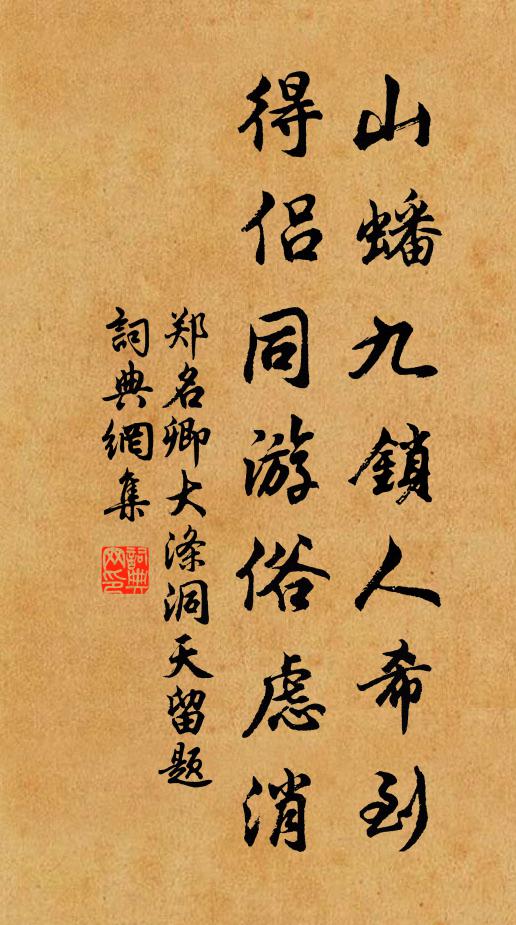 山蟠九鎖人希到
得侣同游俗虑消
郑名卿大涤洞天留题
詞典網集
詞典網印